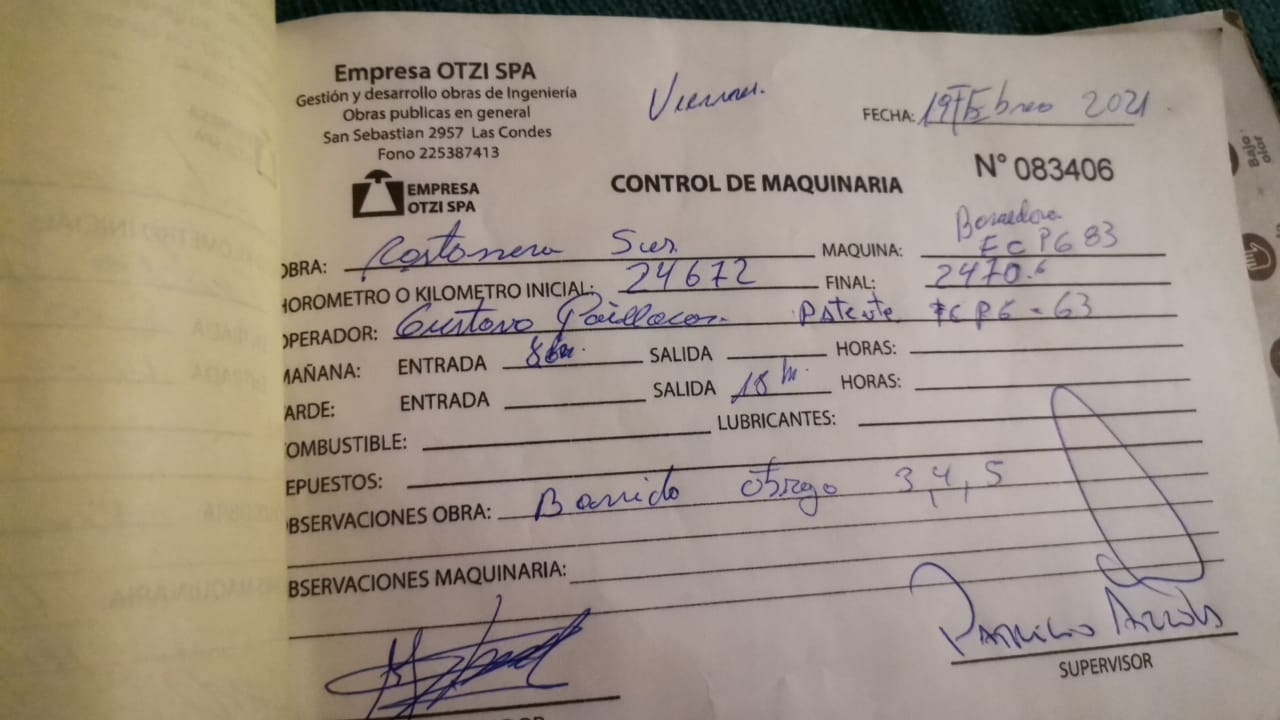 Empresa OTZI SPA
Gestión y desarrollo obras de Ingeniería
Obras publicas en general
San Sebastian 2957 Las Condes
Fono 225387413
EMPRESA
OTZI SPA
Viernes.
FECHA: 19 Febrero 2021
CONTROL DE MAQUINARIA
N° 083406
OBRA: Costanera Sur MAQUINA: FCPG 83
HOROMETRO O KILOMETRO INICIAL: 24672 FINAL: 2470.6
OPERADOR: Gustavo Paillacar Patente FCPG - 63
MAÑANA: ENTRADA 8 hr. SALIDA HORAS:
TARDE: ENTRADA SALIDA 18 h. HORAS:
COMBUSTIBLE: LUBRICANTES:
REPUESTOS:
OBSERVACIONES OBRA: Barrido 3, 4, 5
OBSERVACIONES MAQUINARIA:
Patricio
SUPERVISOR